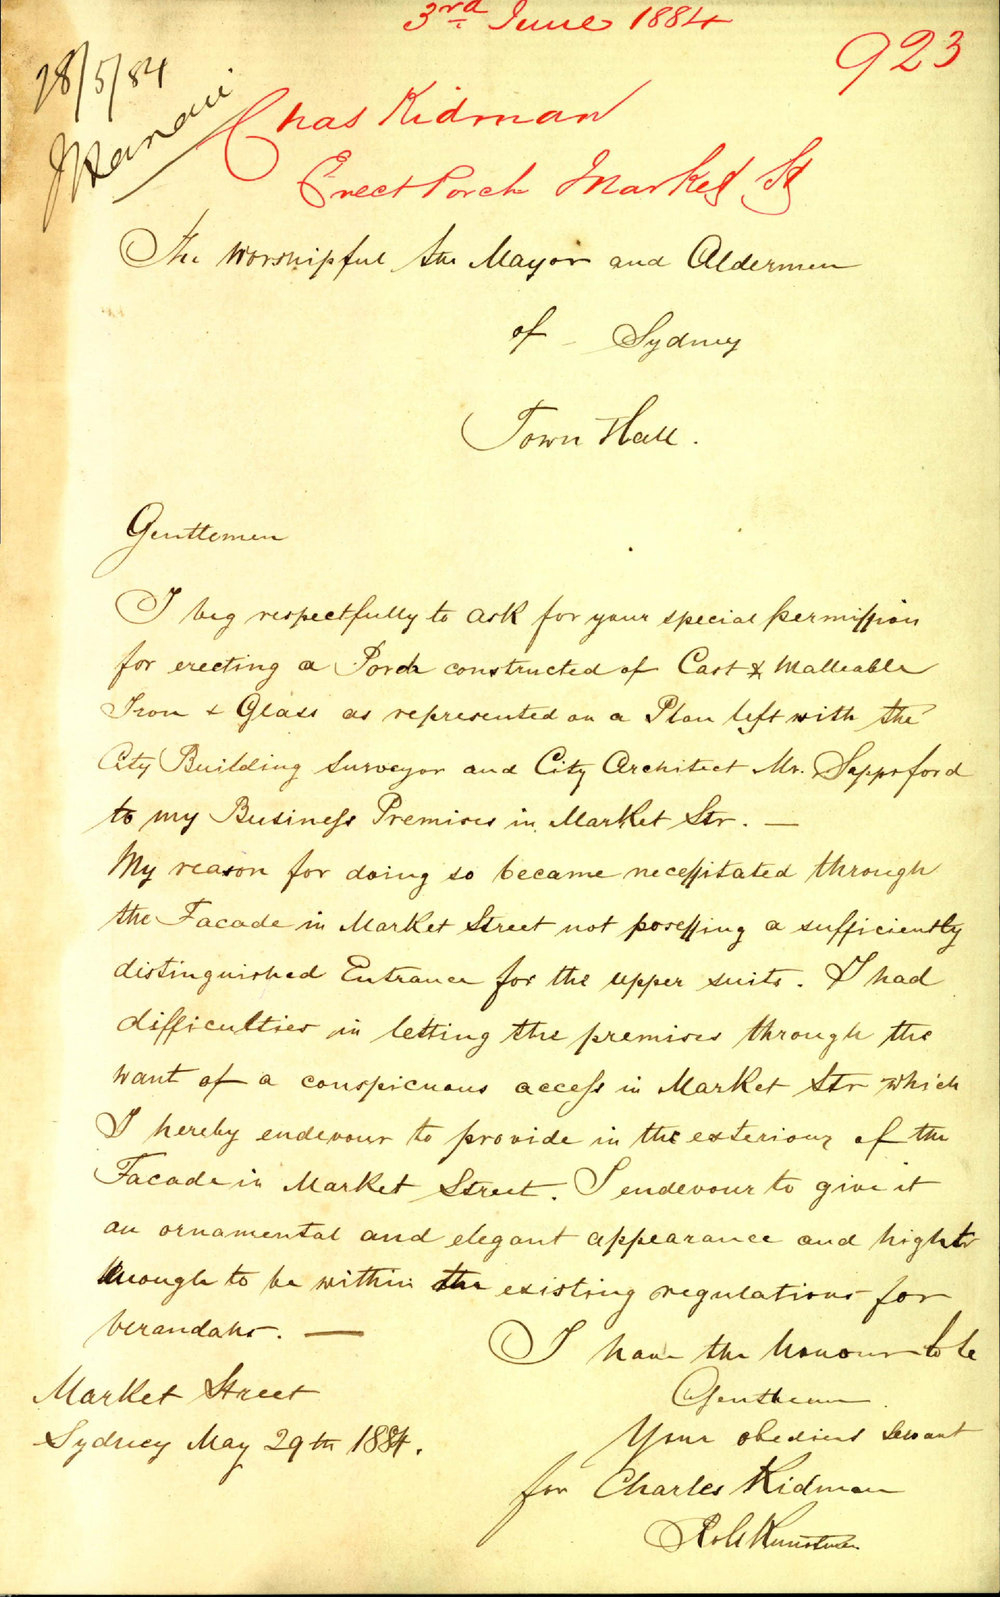 3rd June 1884
923
28/5/84
Chas Kidman
Erect Porch Market St
The Worshipful the Mayor and Aldermen
of Sydney
Town Hall.
Gentlemen
I beg respectfully to ask for your special permission
for erecting a Porch constructed of Cast & Malleable
Iron & Glass as represented on a Plan left with the
City Building Surveyor and City Architect Mr. Sappsford
to my Business Premises in Market Str. —
My reason for doing so became necessitated through
the Facade in Market Street not posessing a sufficiently
distinguished Entrance for the upper suits. I had
difficulties in letting the premises through the
want of a conspicuous access in Market Str which
I hereby endevour to provide in the exteriour of the
Facade in Market Street. I endevour to give it
an ornamental and elegant appearance and hight
enough to be within the existing regulations for
verandahs. —
I have the honour to be
Gentlemen
Your obedient servant
for Charles Kidman
Market Street
Sydney May 29th 1884.